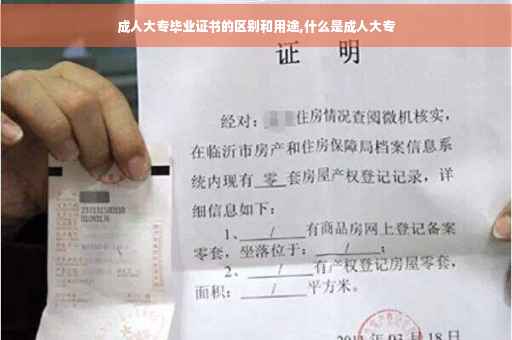 成人大专毕业证书的区别和用途,什么是成人大专
证 明
经对：住房情况查阅微机核实，
在临沂市房产和住房保障局档案信息系
统内现有 零 套房屋产权登记记录，详
细信息如下：
1、 / 有商品房网上登记备案
零套，坐落位于： / ；
2、 / 有产权登记房屋零套，
面积： / 平方米。